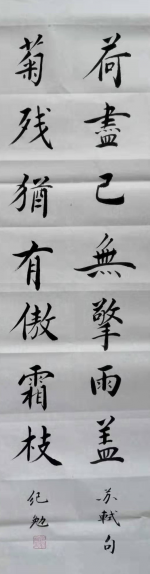 荷盡已無擎雨盖
苏軾句
菊残猶有傲霜枝
纪勉